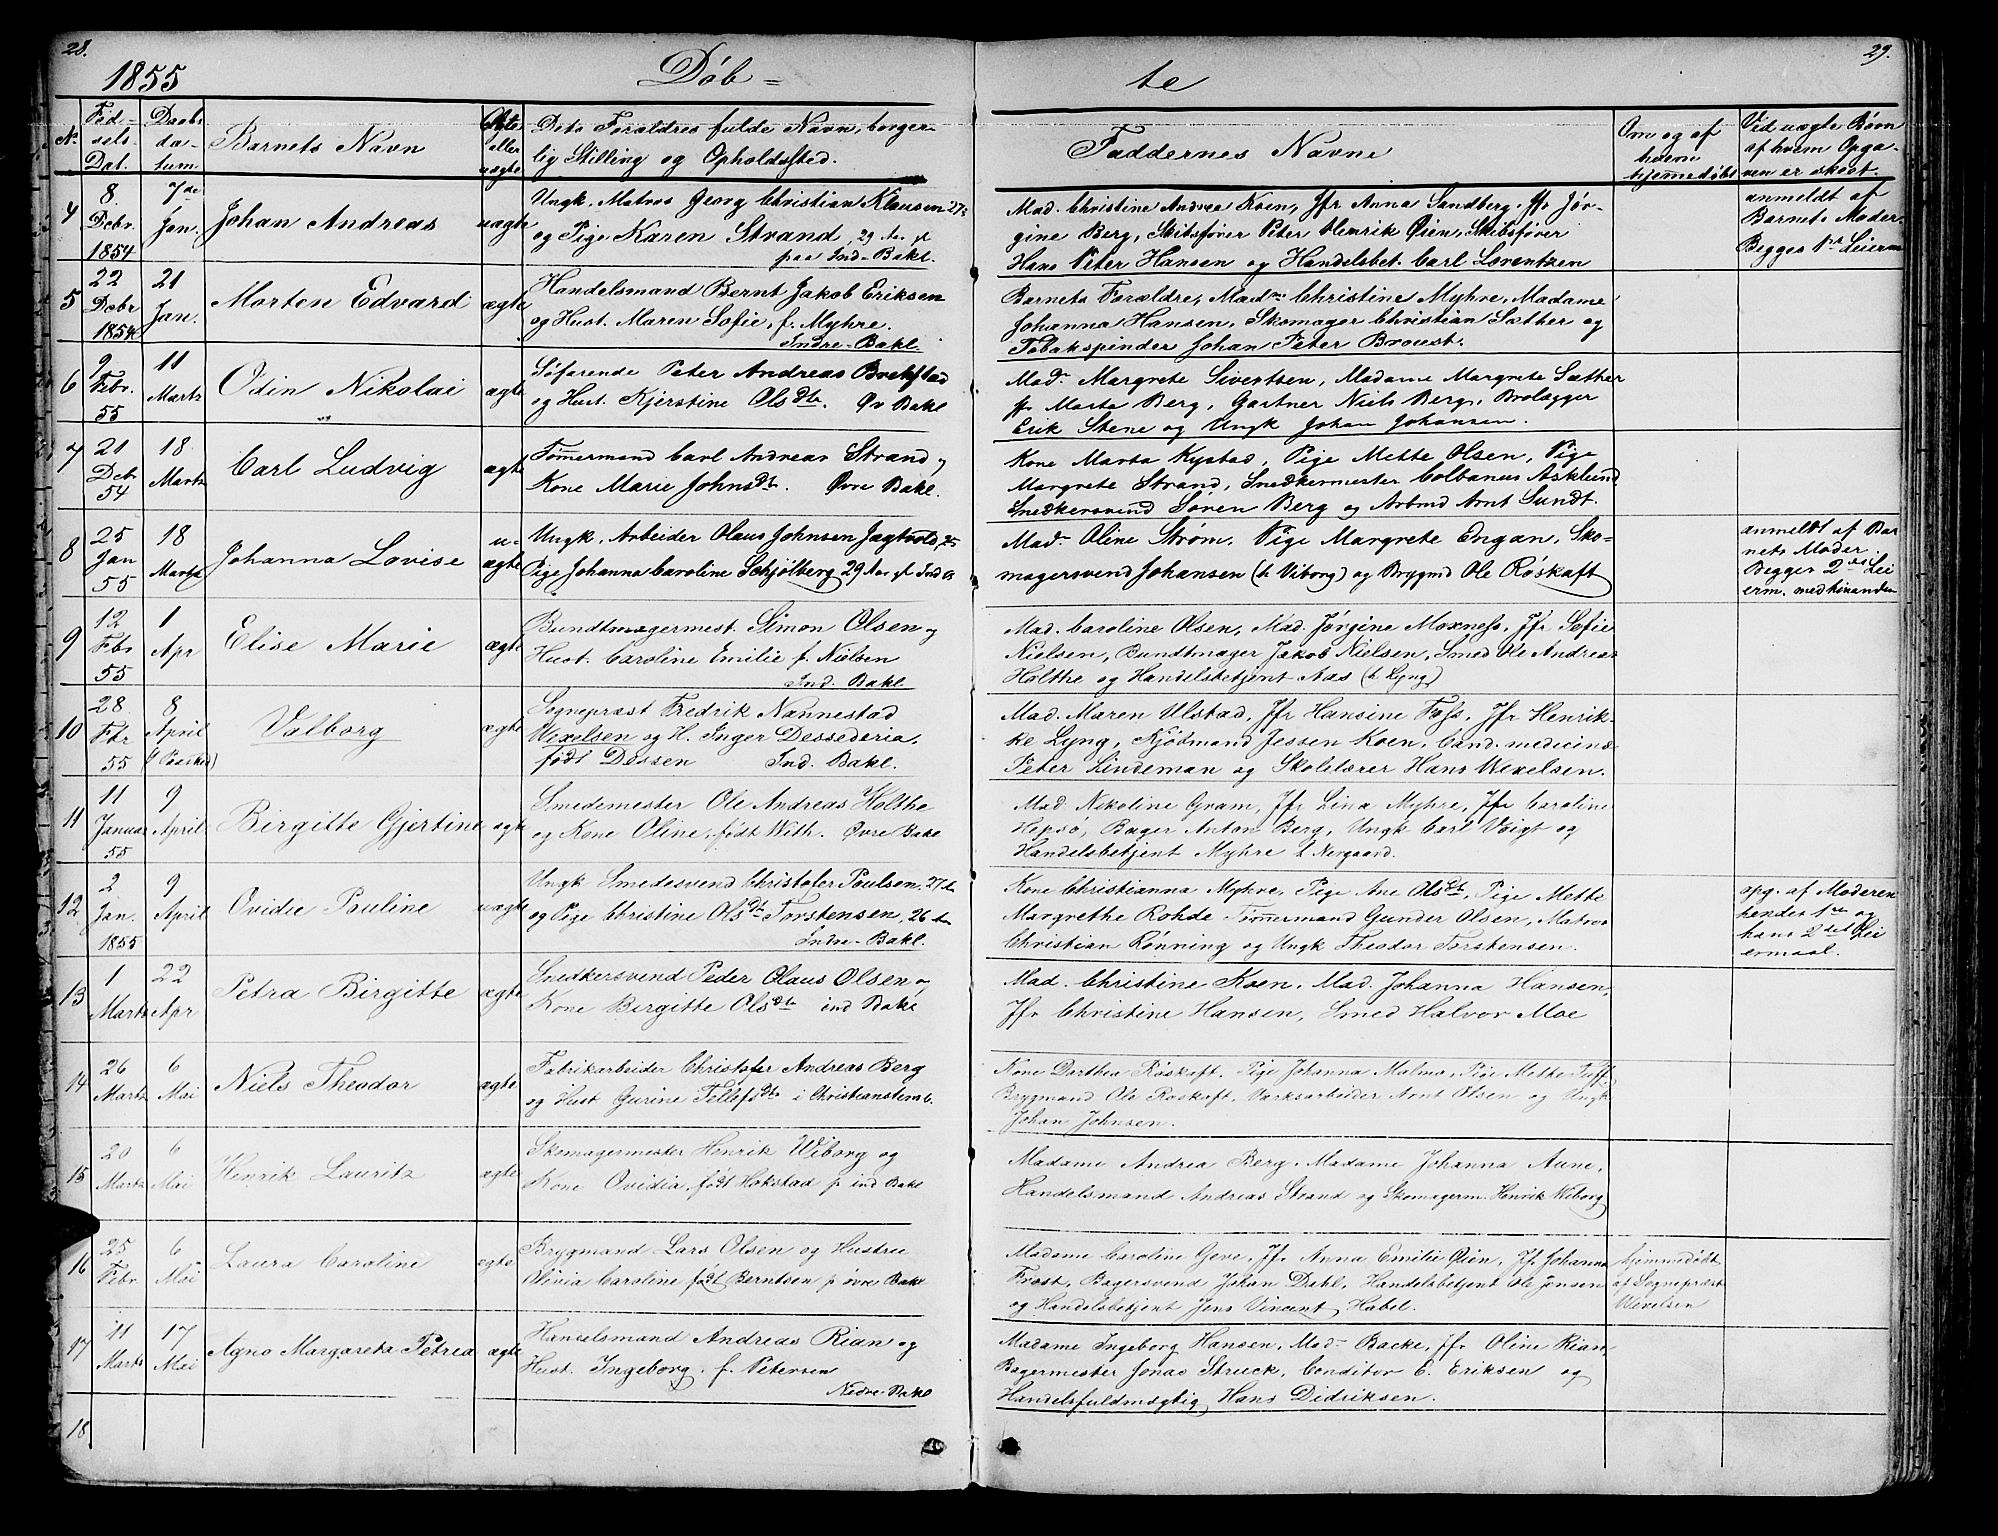 28.
1855
Døb-
№
Fød-
sels-
Dat.
Daabs
da-
tum
Barnets Navn
Ægte
eller
uægte
Dets Forældres fulde Navn, borger-
lig Stilling og Opholdssted.
4
8.
Decbr.
1854
7de
Jan.
Johan Andreas
uægte
Ungk. Matros Georg Christian Klausen 27
og Pige Karen Strand, 29 Aar gl
paa Ind-Bakl.
5
22
Decbr
1854
21
Jan.
Morten Edvard
ægte
Handelsmand Bernt Jakob Eriksen
og Hust. Maren Sofie, f. Myhre.
Indre-Bakl.
6
9
Febr.
55
11
Martz
Odin Nikolai
ægte
Søfarende Peter Andreas Brekstad
og Hust. Kjerstine Olsdtr. Øv Bakl
7
21
Decbr
54
18
Martz
Carl Ludvig
ægte
Tømermand Carl Andreas Strand og
Kone Marie Johnsdtr. Øvre Bakl.
8
25
Jan
55
18
Martz
Johanna Lovise
u-
ægte
Ungk. Arbeider Olaus Johnsen Jagtvold, 25
Pige Johanna Caroline Schjølberg 29 Aar gl Ind B
9
12
Fbr
55
1
Apr
Elise Marie
ægte
Bundtmagermest. Simon Olsen og
Hust. Caroline Emilie f. Nielsen
Ind. Bakl.
10
28
Fbr
55
8
April
(1 Paasked)
Valborg
ægte
Sognepræst Fredrik Nannestad
Wexelsen og H. Inger Dessederia,
født Dessen Ind. Bakl.
11
11
Januar
55
9
April
Birgitte Gjertine
ægte
Smedemester Ole Andreas Holthe
og Kone Oline, født With. Øvre Bakl
12
2
Jan.
1855
9
April
Ovidie Pouline
uægte
Ungk Smedesvend Christofer Poulsen, 27
og Pige Christine Olsdtr Torstensen, 26
Indre-Bakl.
13
1
Martz
22
Apr
Petra Birgitte
ægte
Snedkersvend Peder Olaus Olsen og
Kone Birgitte Olsdtr ind Bakl
14
26
Martz
6
Mai
Niels Theodor
ægte
Fabrikarbeider Christofer Andreas Berg
og Hust Gurine Tellefsdtr i Christiansten
15
20
Martz
6
Mai
Henrik Lauritz
ægte
Skomagermester Henrik Wiborg og
Kone Ovidia, født Hokstad p ind Bakl
16
25
Febr
6
Mai
Laura Caroline
ægte
Brygmand Lars Olsen og Hustru
Olivia Caroline født Berntsen p øvre Bakl
17
11
Martz
17
Mai
Agno Margareta Petrea
ægte
Handelsmand Andreas Rian og
Hust. Ingeborg. f. Petersen
Nedre-Bakl
18
29.
te
Faddernes Navne
Om og af
hvem
hjemmedøbt
Ved uægte Børn
af hvem Opga-
ven er skeet.
Mad. Christine Andrea Koen, Jfr Anna Sandberg. Jfr Jør-
gine Berg, Skibsfører Peter Henrik Øien, Skibsfører
Hans Peter Hansen og Handelsbet. Carl Lorentzen
anmeldt af
Barnets Moder-
Begges 1ste Leierm
Barnets Forældre, Madme Christine Myhre, Madame
Johanna Hansen, Skomager Christian Sæther og
Tobakspinder Johan Peter Broust.
Mad. Margrete Sivertsen, Madame Margrete Sæther
Jfr Marta Berg, Gartner Niels Berg, Brolægger
Erik Stene og Ungk Johan Johansen.
Kone Marta Kystad, Pige Mette Olsen, Pige
Margrete Strand, Snedkermester Colbanus Asklund
Snedkersvend Søren Berg og Arbmd Arnt Sundt.
Mad. Oline Strøm, Pige Margrete Engan, Sko-
magersvend Johansen (h Viborg) og Brygmd Ole Røskaft
anmeldt af Bar
nets Moder.
Begges 2det Lei
erm. med hinanden
Mad. Caroline Olsen, Mad. Jørgine Moxness, Jfr Sofie
Nielsen, Bundtmager Jakob Nielsen, Smed Ole Andreas
Holthe og Handelsbetjent Aas (h Lyng)
Mad. Maren Ulstad, Jfr Hansine Foss, Jfr Henrik-
ke Lyng, Kjøbmand Jessen Koen, Cand. medicinæ
Peter Lindeman og Skolelærer Hans Wexelsen.
Mad. Nikoline Gram, Jfr Lina Myhre, Jfr Caroline
Hepsø, Bager Anton Berg, Ungk Carl Voigt og
Handelsbetjent Myhre h Nergaard.
Kone Christianna Myhre, Pige Ane Olsdt, Pige Mette
Margrethe Rohde Tømermand Gunder Olsen, Matros
Christian Rønning og Ungk Theodor Torstensen.
opg. af Moderen
hendes 1ste og
hans 2det Lei
ermaal.
Mad. Christine Koen. Mad. Johanna Hansen,
Jfr Christine Hansen, Smed Halvor Moe
Kone Dorthea Røskaft. Pige Johanna Malmo, Pige Mette
Brygmand Ole Røskaft, Værksarbeider Arnt Olsen og Ungk
Johan Johnsen.
Madame Andrea Berg. Madame Johanna Aune,
Handelsmand Andreas Strand og Skomagerm. Henrik Wiborg
Madame Caroline Geve, Jfr Anna Emilie Øien, Jf Johanna
Frost, Bagersvend Johan Dahl, Handelsbetjent Ole Jensen
og Handelsbetjent Jens Vincent Habel.
hjemmedøbt
af Sognepræst
Wexelsen
Madame Ingeborg Hansen, Mad. Backe, Jfr Oline Rian,
Bagermester Jonas Struck, Conditor C. Eriksen og
Handelsfuldmægtig Hans Didriksen.